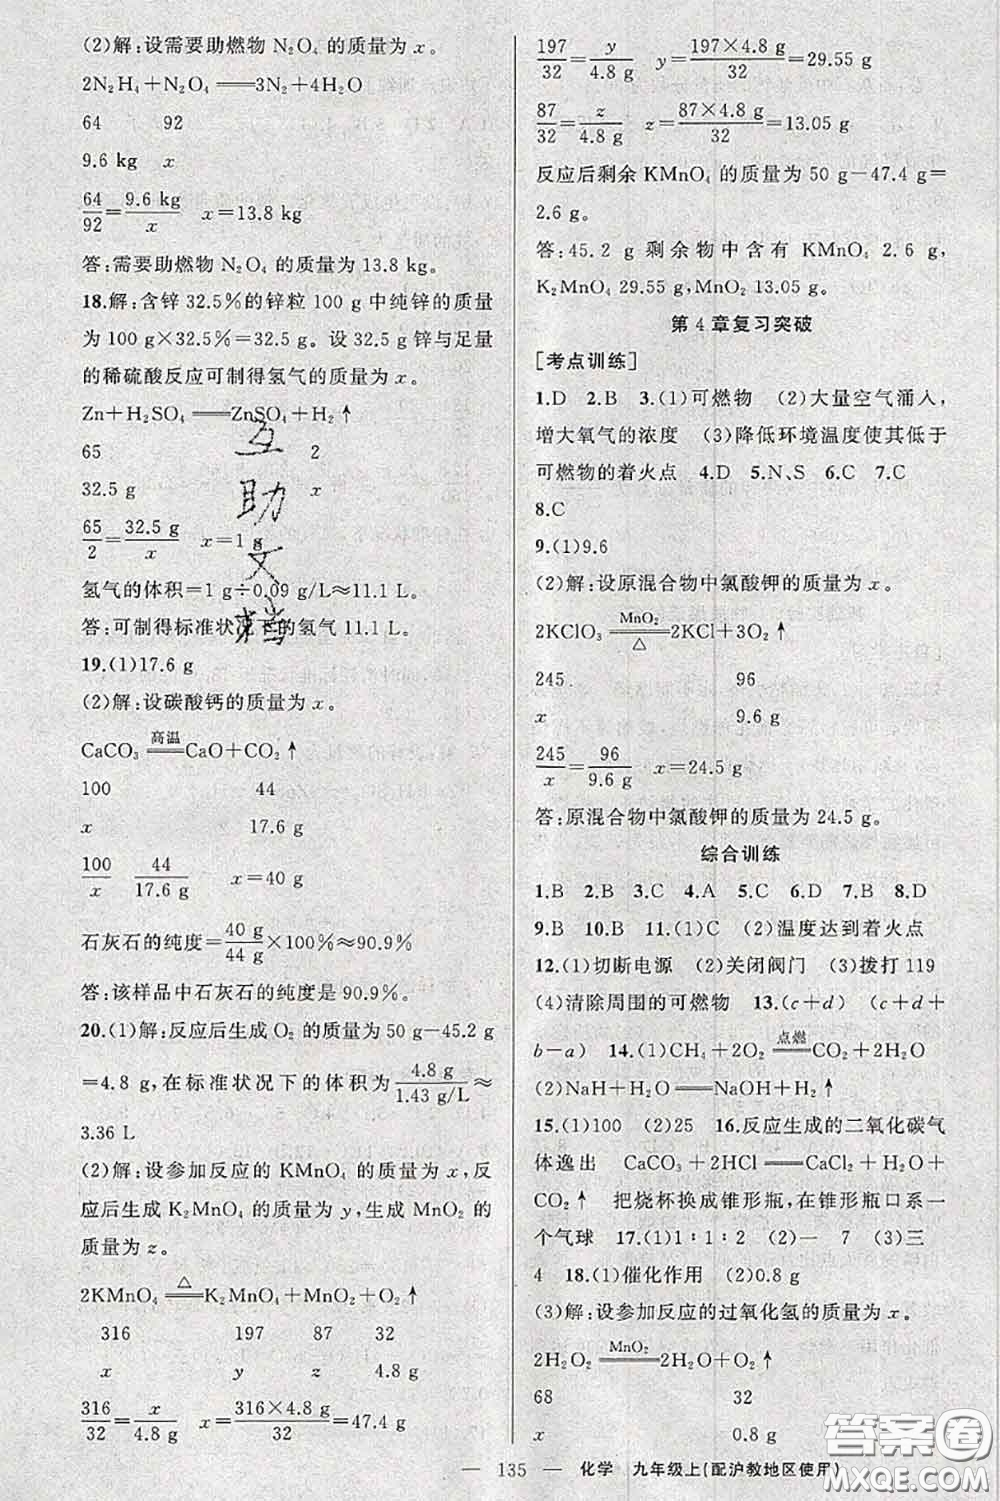 (2)解:设需要助燃物 N₂O₄ 的质量为 x。
2N₂H₄+N₂O₄══3N₂+4H₂O
64 92
9.6 kg x
64/92=9.6 kg/x x=13.8 kg
答:需要助燃物 N₂O₄ 的质量为 13.8 kg。
18.解:含锌 32.5%的锌粒 100 g 中纯锌的质量
为 100 g×32.5%=32.5 g。设 32.5 g 锌与足量
的稀硫酸反应可制得氢气的质量为 x。
Zn+H₂SO₄══ZnSO₄+H₂↑
65 2
32.5 g x
65/2=32.5 g/x x=1 g
氢气的体积=1 g÷0.09 g/L≈11.1 L
答:可制得标准状况下的氢气 11.1 L。
19.(1)17.6 g
(2)解:设碳酸钙的质量为 x。
CaCO₃ ══高温══ CaO+CO₂↑
100 44
x 17.6 g
100/x 44/17.6 g x=40 g
石灰石的纯度=40 g/44 g×100%≈90.9%
答:该样品中石灰石的纯度是 90.9%。
20.(1)解:反应后生成 O₂ 的质量为 50 g—45.2 g
=4.8 g,在标准状况下的体积为 4.8 g/1.43 g/L≈
3.36 L
(2)解:设参加反应的 KMnO₄ 的质量为 x,反
应后生成 K₂MnO₄ 的质量为 y,生成 MnO₂ 的
质量为 z。
2KMnO₄ ══△══ K₂MnO₄+MnO₂+O₂↑
316 197 87 32
x y z 4.8 g
316/32=x/4.8 g x=316×4.8 g/32=47.4 g
197/32=y/4.8 g y=197×4.8 g/32=29.55 g
87/32=z/4.8 g z=87×4.8 g/32=13.05 g
反应后剩余 KMnO₄ 的质量为 50 g—47.4 g=
2.6 g。
答:45.2 g 剩余物中含有 KMnO₄ 2.6 g,
K₂MnO₄ 29.55 g,MnO₂ 13.05 g。
第 4 章复习突破
[考点训练]
1.D 2.B 3.(1)可燃物 (2)大量空气涌入,
增大氧气的浓度 (3)降低环境温度使其低于
可燃物的着火点 4.D 5.N、S 6.C 7.C
8.C
9.(1)9.6
(2)解:设原混合物中氯酸钾的质量为 x。
2KClO₃ ══MnO₂/△══ 2KCl+3O₂↑
245 96
x 9.6 g
245/x=96/9.6 g x=24.5 g
答:原混合物中氯酸钾的质量为 24.5 g。
综合训练
1.B 2.B 3.C 4.A 5.C 6.D 7.B 8.D
9.D 10.B 11.(1)C (2)温度达到着火点
12.(1)切断电源 (2)关闭阀门 (3)拨打 119
(4)清除周围的可燃物 13.(c+d) (c+d+
b—a) 14.(1)CH₄+2O₂ ══点燃══ CO₂+2H₂O
(2)NaH+H₂O══NaOH+H₂↑
15.(1)100 (2)25 16.反应生成的二氧化碳气
体逸出 CaCO₃+2HCl══CaCl₂+H₂O+
CO₂↑ 把烧杯换成锥形瓶,在锥形瓶口系一
个气球 17.(1)1∶1∶2 (2)一 7 (3)三
4 18.(1)催化作用 (2)0.8 g
(3)解:设参加反应的过氧化氢的质量为 x。
2H₂O₂ ══MnO₂══ 2H₂O+O₂↑
68 32
x 0.8 g
— 135 — 化学 九年级上(配沪教地区使用)
互
助
文
档
答案圈
MXQE.COM